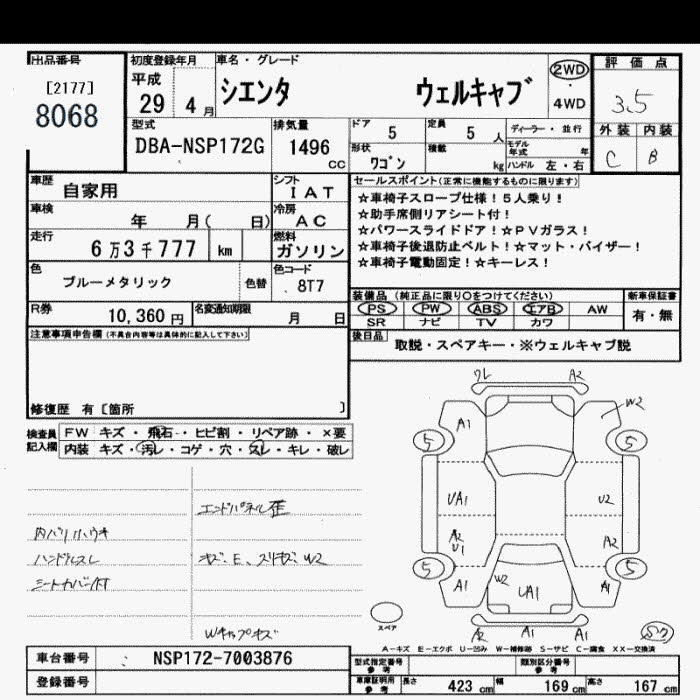 出品番号
[2177]
8068
初度登録年月
平成
29 4 月
車名・グレード
シエンタ ウェルキャブ
2WD
・
4WD
評価点
3.5
外装 内装
C B
型式
DBA-NSP172G
排気量
1496
CC
ドア 5
定員 5 人
形状
ワゴン
積載 kg
ディーラー・並行
モデル年式 年
ハンドル 左・右
車歴 自家用
シフト
IAT
車検 年 月( 日)
冷房
AC
走行 6万3千777 km
燃料
ガソリン
色 ブルーメタリック 色替
色コード
8T7
R券 10,360 円
名変通知期限 月 日
セールスポイント(正常に機能するものに限ります)
☆車椅子スロープ仕様!5人乗り!
☆助手席側リアシート付!
☆パワースライドドア!☆PVガラス!
☆車椅子後退防止ベルト!☆マット・バイザー!
☆車椅子電動固定!☆キーレス!
装備品(純正品に限り〇をつけてください) 新車保証書
PS PW ABS エアB AW 有・無
SR ナビ TV カワ
後日品 取説・スペアキー・※ウェルキャブ説
注意事項申告欄(不具合内容等は具体的に記入して下さい)
修復歴 有〔箇所 〕
検査員
記入欄
FW キズ・飛石・ヒビ割・リペア跡・×要
内装 キズ・汚レ・コゲ・穴・スレ・キレ・破レ
エンドパネル歪
内バリハウキ
ハンドルスレ
キズ、E、スリキズ、W2
シートカバー付
Wキャブキズ
ワレ A2
A1 W2
5 5
UA1 U2
A2
U1
A2
5 5
A1 W2 UA1 A1
A2 A1 A1
スペア
A-キズ E-エクボ U-凹み W-補修跡 S-サビ C-腐食 XX-交換済
車台番号 NSP172-7003876
登録番号
型式指定番号
参考
類別区分番号
参考
車庫証明用
参考
長さ 423 cm 幅 169 cm 高さ 167 cm